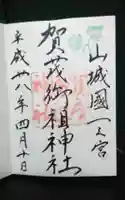 山城國一之宮
賀茂御祖神社
平成廿八年四月廿日